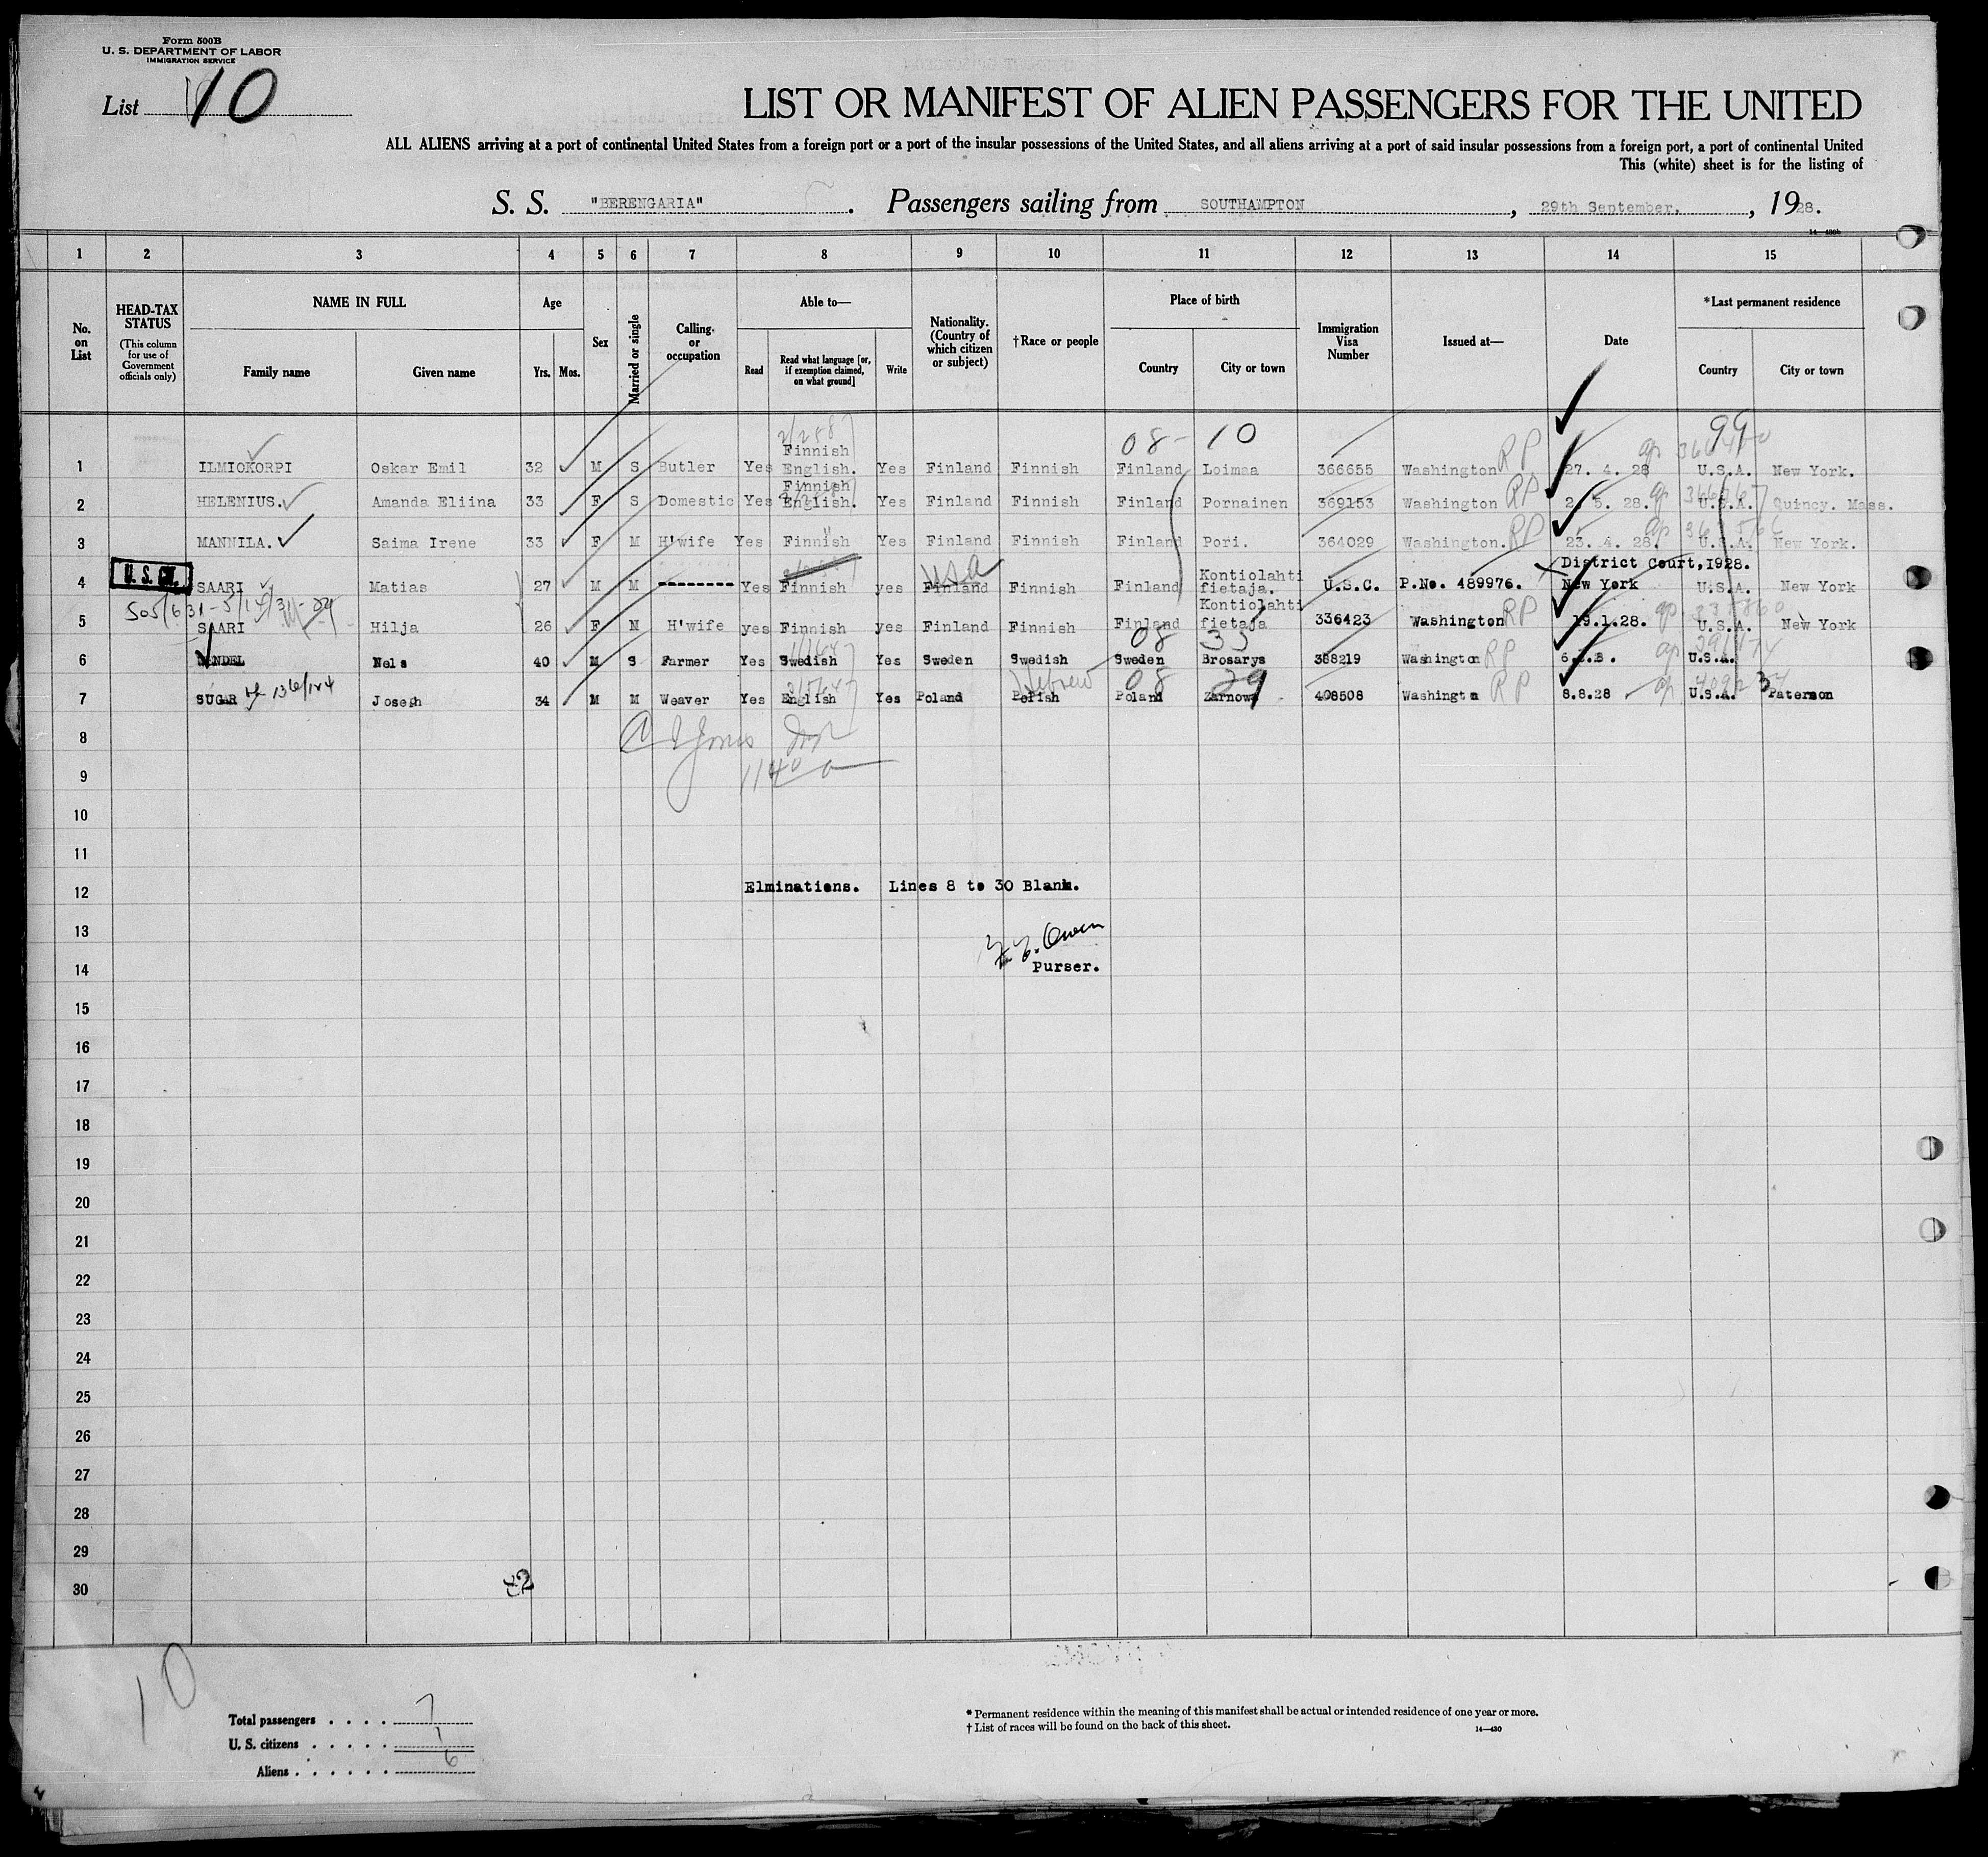 Form 500B
U. S. DEPARTMENT OF LABOR
IMMIGRATION SERVICE
List 10
LIST OR MANIFEST OF ALIEN PASSENGERS FOR THE UNITED
ALL ALIENS arriving at a port of continental United States from a foreign port or a port of the insular possessions of the United States, and all aliens arriving at a port of said insular possessions from a foreign port, a port of continental United
This (white) sheet is for the listing of
S. S. "BERENGARIA". Passengers sailing from SOUTHAMPTON, 29th September., 1928.
1 2 3 4 5 6 7 8 9 10 11 12 13 14 15
No. on List
HEAD-TAX STATUS (This column for use of Government officials only)
NAME IN FULL Family name Given name
Age Yrs. Mos.
Sex
Married or single
Calling or occupation
Able to— Read Read what language [or, if exemption claimed, on what ground] Write
Nationality. (Country of which citizen or subject)
†Race or people
Place of birth Country City or town
Immigration Visa Number
Issued at—
Date
*Last permanent residence Country City or town
08- 10 99
1 ILMIOKORPI Oskar Emil 32 M S Butler Yes Finnish English. Yes Finland Finnish Finland Loimaa 366655 Washington RP 27. 4. 28 U.S.A. New York.
2 HELENIUS. Amanda Eliina 33 F S Domestic Yes Finnish English. Yes Finland Finnish Finland Pornainen 369153 Washington RP 2. 5. 28. U.S.A. Quincy. Mass.
3 MANNILA. Saima Irene 33 F M H'wife Yes Finnish Yes Finland Finnish Finland Pori. 364029 Washington. RP 23. 4. 28. U.S.A. New York.
4 U.S. SAARI Matias 27 M M -------- Yes Finnish yes Finland USA Finnish Finland Kontiolahti fietaja. U.S.C. P.No. 489976. District Court,1928. New York U.S.A. New York
5 SAARI Hilja 26 F M H'wife yes Finnish yes Finland Finnish Finland Kontiolahti fietaja 336423 Washington RP 19.1.28. U.S.A. New York
08 33
6 Nels 40 M S Farmer Yes Swedish Yes Sweden Swedish Sweden Brosarys 388219 Washington RP U.S.A.
Hebrew 08 29
7 SUGAR Joseph 34 M M Weaver Yes English Yes Poland Polish Poland Zarnowa 408508 Washington RP 8.8.28 U.S.A. Paterson
8
9
10
11
12 Elminations. Lines 8 to 30 Blank.
13 Owen
14 Purser.
15
16
17
18
19
20
21
22
23
24
25
26
27
28
29
30
10
Total passengers . . . . 7
U. S. citizens . . . . . 1
Aliens . . . . . . 6
* Permanent residence within the meaning of this manifest shall be actual or intended residence of one year or more.
† List of races will be found on the back of this sheet.
14—430